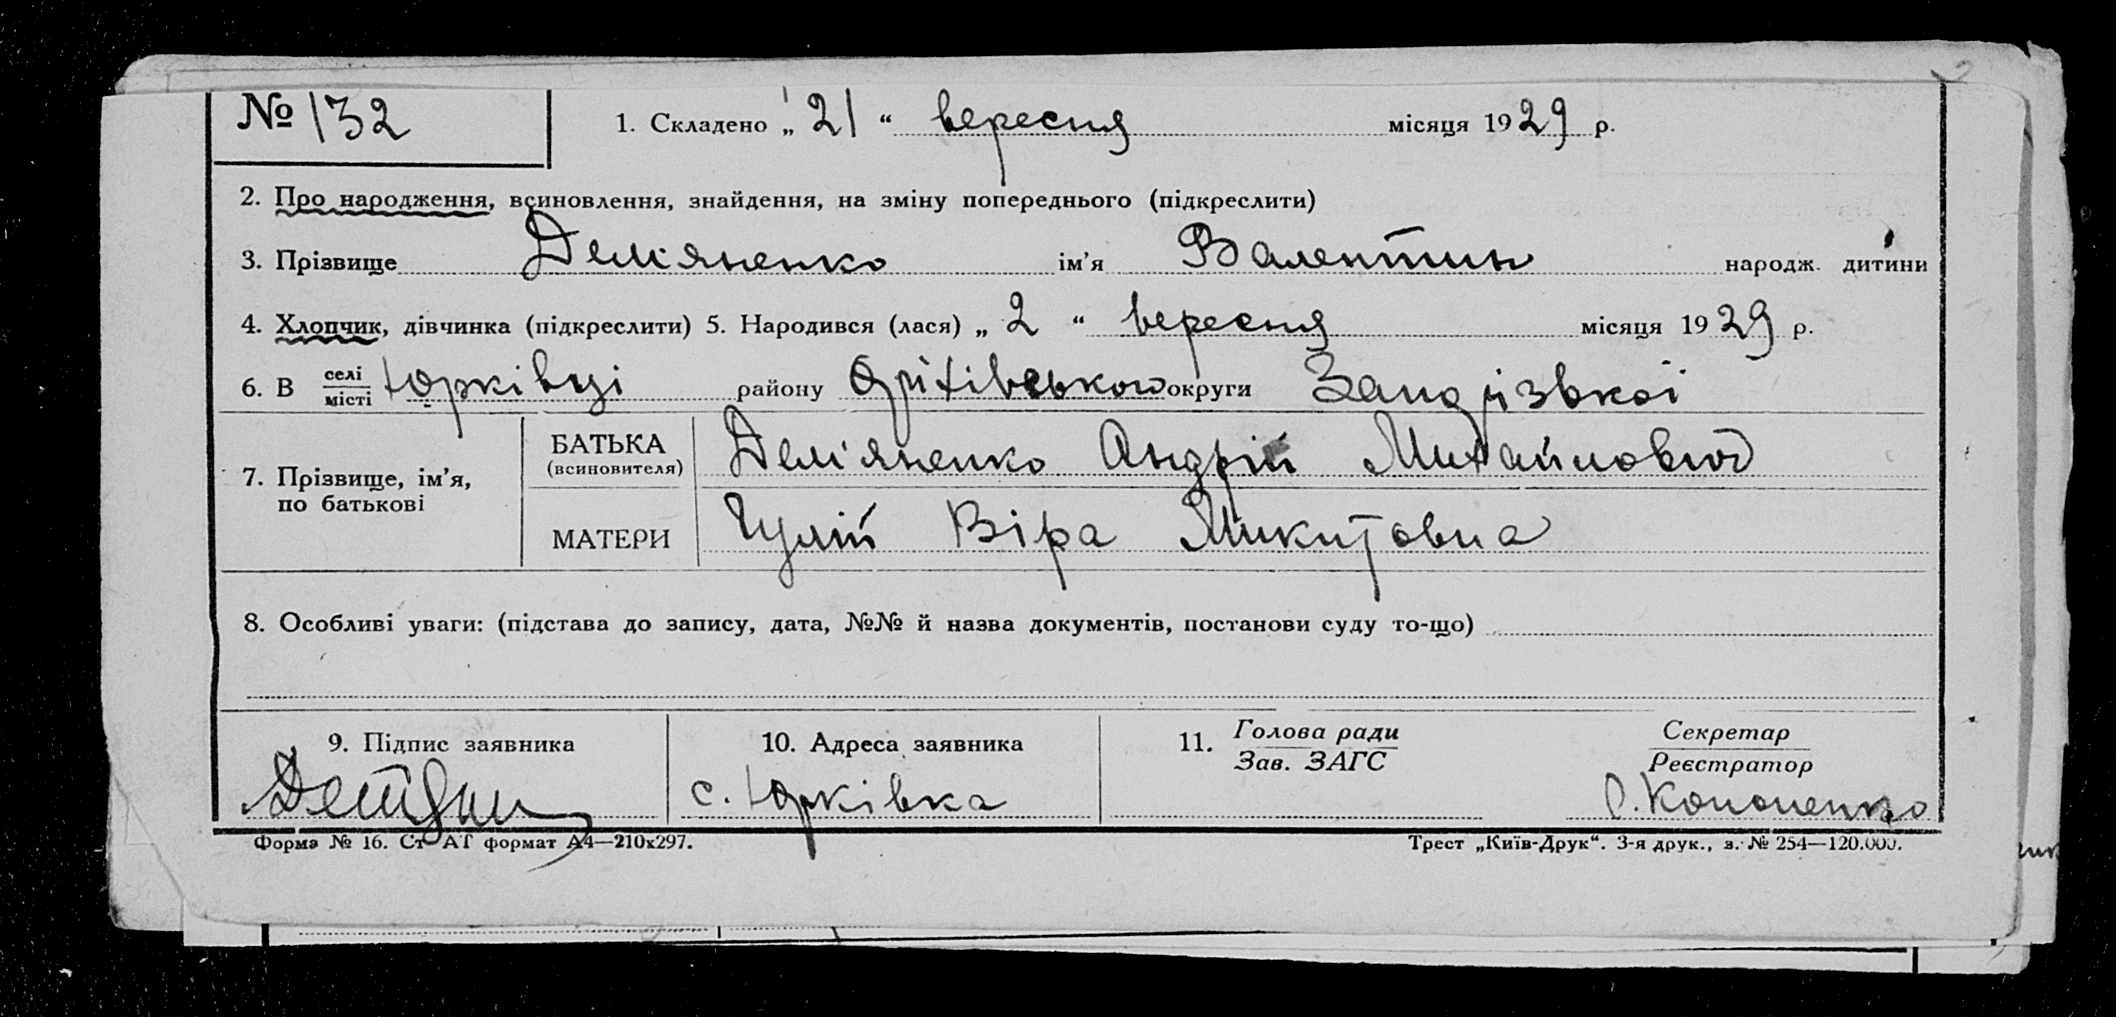 № 132
1. Складено „ 21 “ вересня місяця 1929 р.
2. Про народження, всиновлення, знайдення, на зміну попереднього (підкреслити)
3. Прізвище Дем'яненко ім'я Валентин народж. дитини
4. Хлопчик, дівчинка (підкреслити) 5. Народився (лася) „ 2 “ вересня місяця 1929 р.
6. В селі місті Юрківці району Оріхівського округи Запорізької
7. Прізвище, ім'я, по батькові
БАТЬКА (всиновителя) Дем'яненко Андрій Михайлович
МАТЕРИ Гулій Віра Микитовна
8. Особливі уваги: (підстава до запису, дата, №№ й назва документів, постанови суду то-що)
9. Підпис заявника
10. Адреса заявника
с. Юрківка
11. Голова ради
Зав. ЗАГС
Секретар
Реєстратор
О. Кононенко
Форма № 16. Ст АТ формат А4—210х297.
Трест „Київ-Друк“. 3-я друк., з. № 254—120.000.